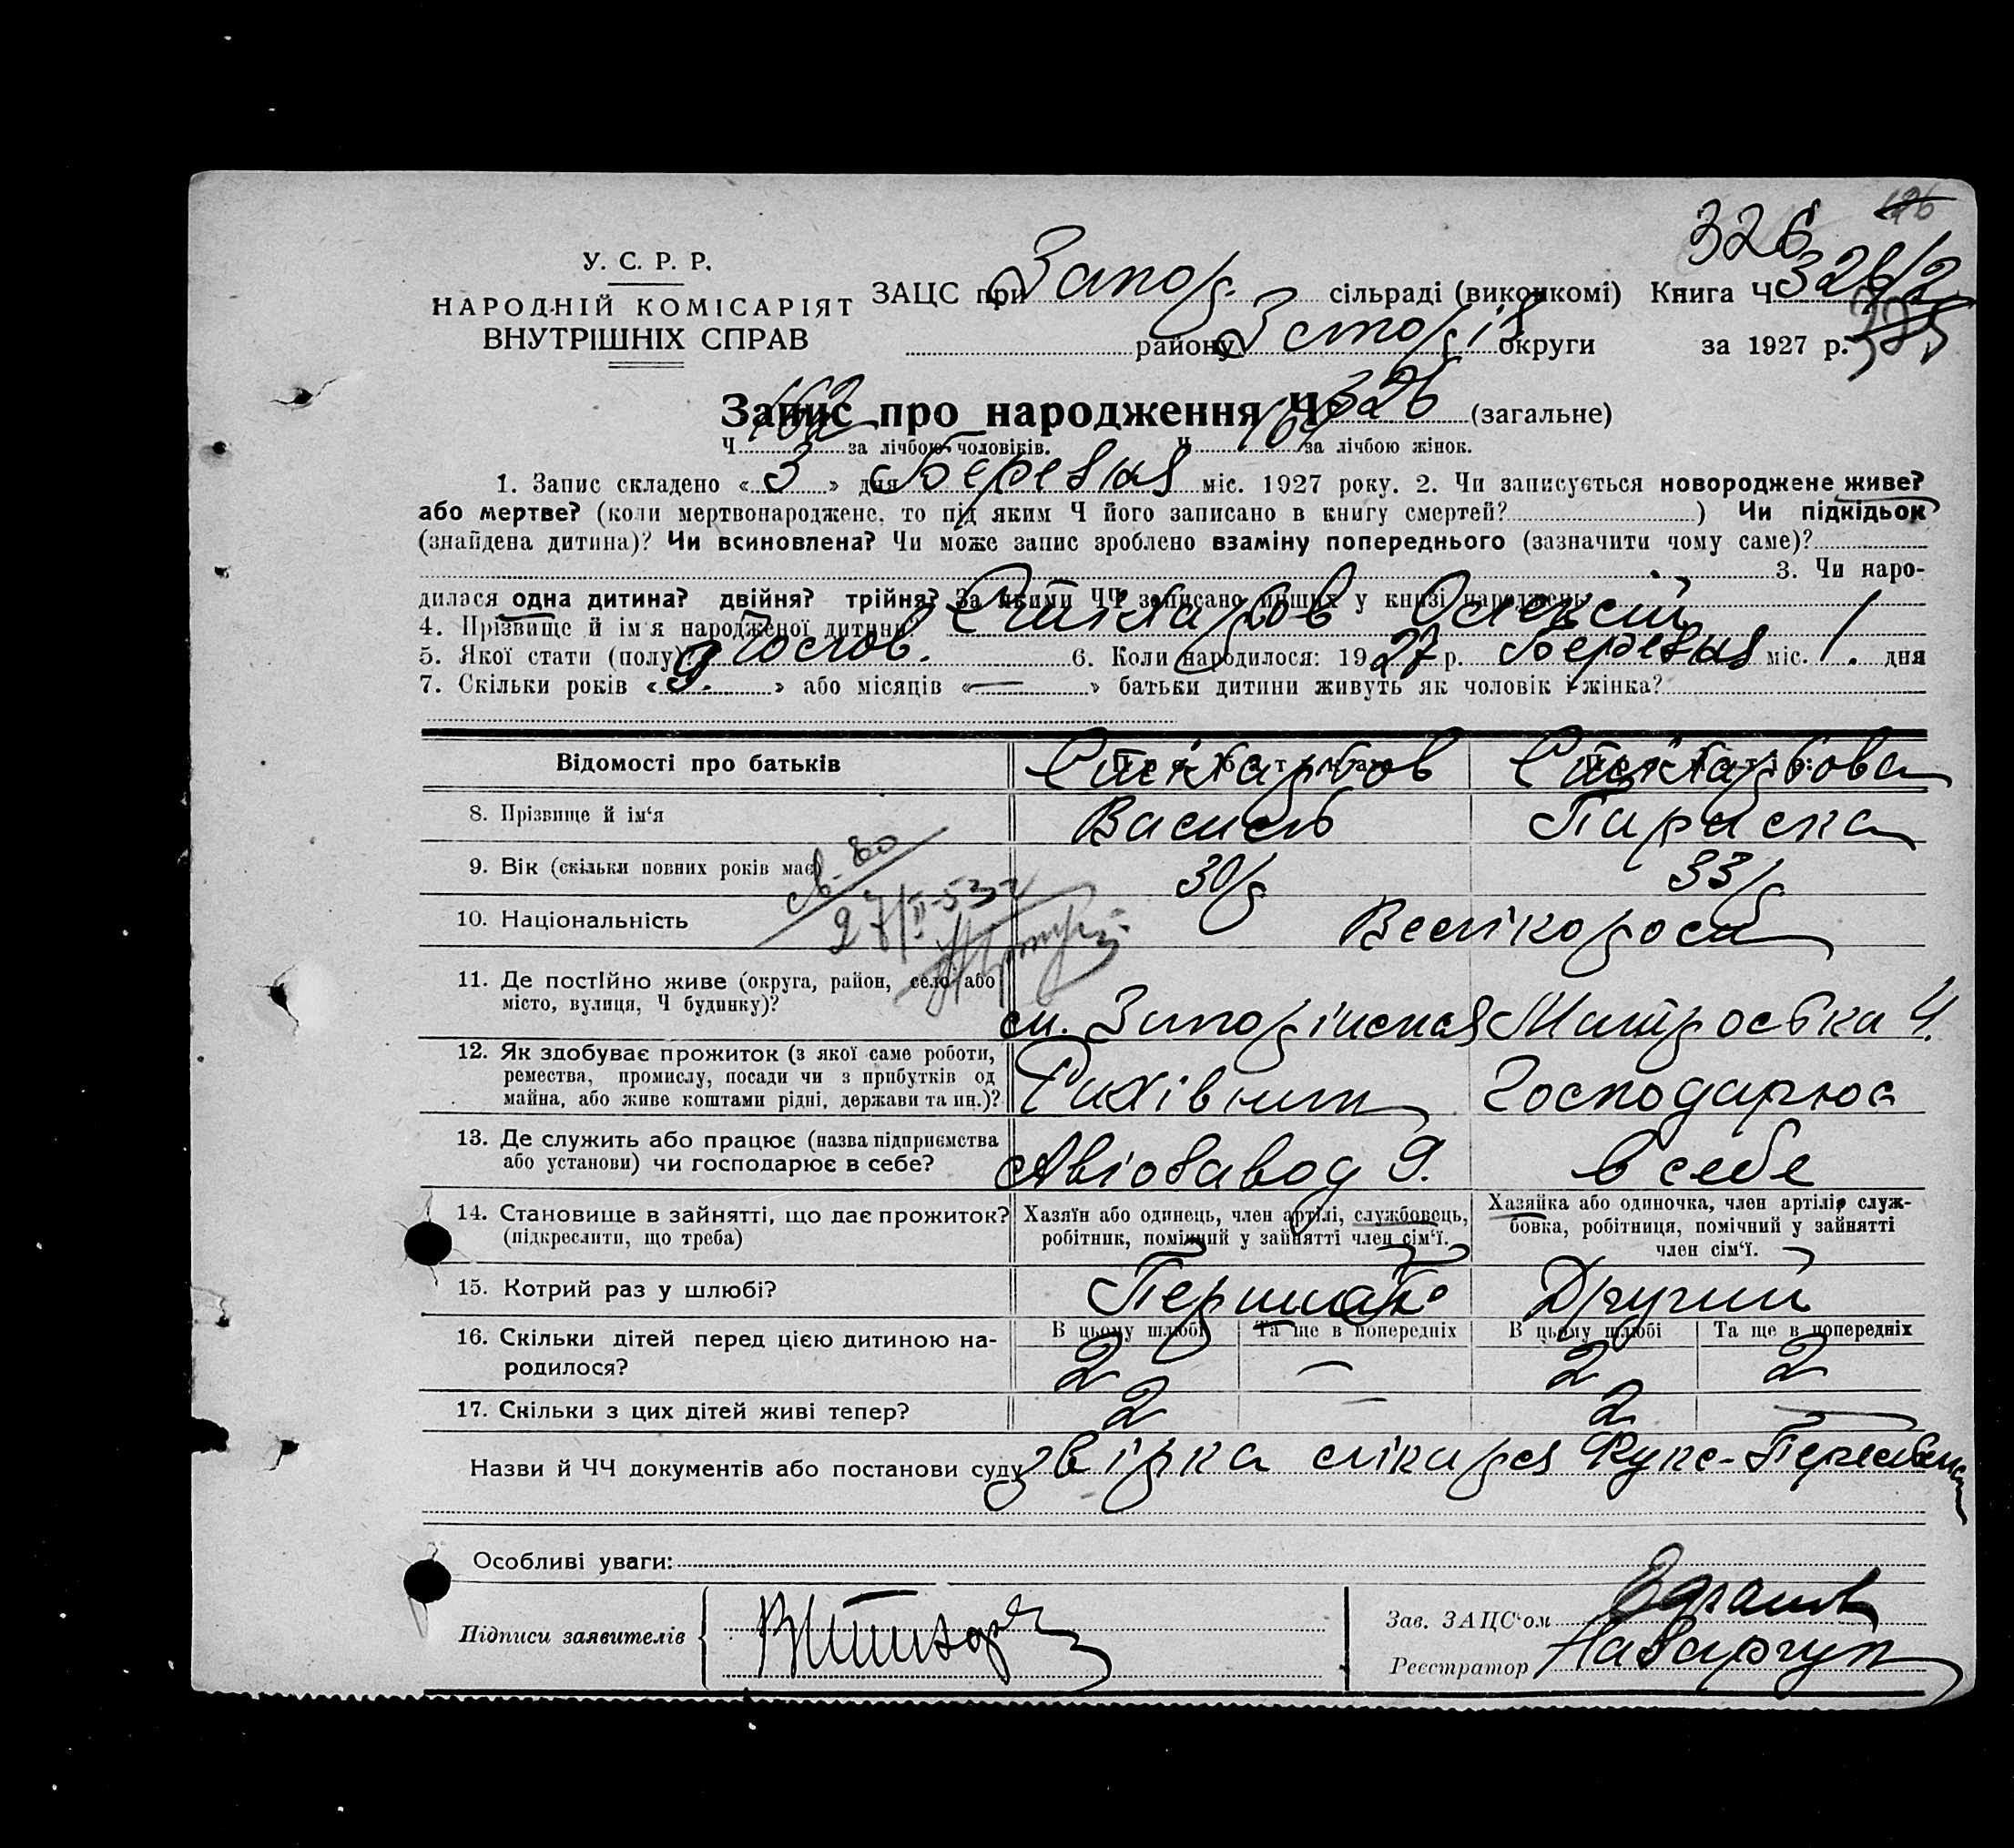 326
У. С. Р. Р.
НАРОДНІЙ КОМІСАРІЯТ
ВНУТРІШНІХ СПРАВ
ЗАЦС при Запор. сільраді (виконкомі) Книга Ч 326/2
району округи за 1927 р.
Запис про народження Ч 326 (загальне)
Ч 162 за лічбою чоловіків. Ч 164 за лічбою жінок.
1. Запис складено « 3 » дня березня міс. 1927 року. 2. Чи записується новороджене живе?
або мертве? (коли мертвонароджене, то під яким Ч його записано в книгу смертей? ) Чи підкідьок
(знайдена дитина)? Чи всиновлена? Чи може запис зроблено взаміну попереднього (зазначити чому саме)?
3. Чи наро-
дилася одна дитина? двійня? трійня? За якими ЧЧ записано инших у книзі народжень
4. Прізвище й ім'я народженої дитини? Олексій
5. Якої стати (полу)? чолов. 6. Коли народилося: 1927 р. березня міс. 1. дня
7. Скільки років « 9. » або місяців « — » батьки дитини живуть як чоловік і жінка?
Відомості про батьків
8. Прізвище й ім'я Василь Параска
9. Вік (скільки повних років має) 30/р 33/р
10. Національність Велікороси
11. Де постійно живе (округа, район, село або
місто, вулиця, Ч будинку)?
12. Як здобуває прожиток (з якої саме роботи,
ремества, промислу, посади чи з прибутків од
майна, або живе коштами рідні, держави та ин.)? Рахівник Господарює
13. Де служить або працює (назва підприємства
або установи) чи господарює в себе? Авіозавод 9. в себе
14. Становище в зайнятті, що дає прожиток?
(підкреслити, що треба)
Хазяїн або одинець, член артілі, службовець,
робітник, помічний у зайнятті член сім'ї.
Хазяйка або одиночка, член артілі, служ-
бовка, робітниця, помічний у зайнятті
член сім'ї.
15. Котрий раз у шлюбі? Другий
16. Скільки дітей перед цією дитиною на-
родилося?
В цьому шлюбі Та ще в попередніх В цьому шлюбі Та ще в попередніх
2 — 2 2
17. Скільки з цих дітей живі тепер? 2 — 2 —
Назви й ЧЧ документів або постанови суду лікаря
Особливі уваги:
Підписи заявителів
Зав. ЗАЦС'ом
Реєстратор